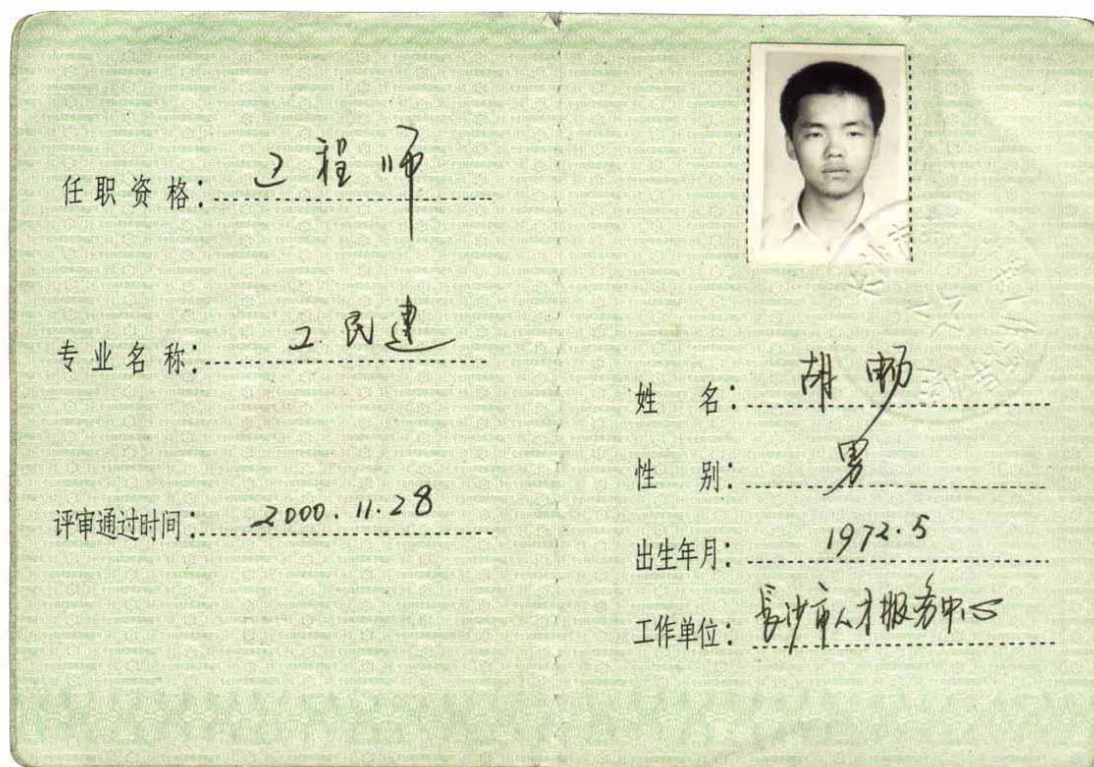 任职资格：工程师
专业名称：工民建
评审通过时间：2000.11.28
姓 名：胡畅
性 别：男
出生年月：1972.5
工作单位：長沙市人才服务中心